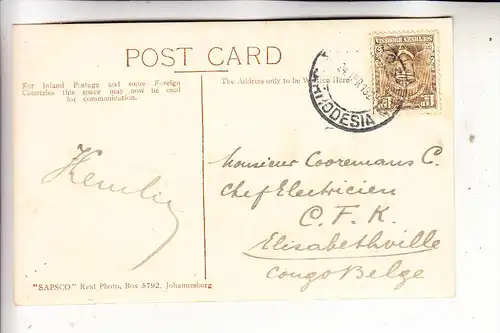 POST CARD
For Inland Postage and some Foreign
Countries this space may now be used
for communication.
The Address only to be Written Here
RHODESIA
SOUTHERN RHODESIA
Monsieur Cooremans C.
Chef Electricien
C. F. K.
Elisabethville
Congo Belge
"SAPSCO" Real Photo, Box 5792, Johannesburg